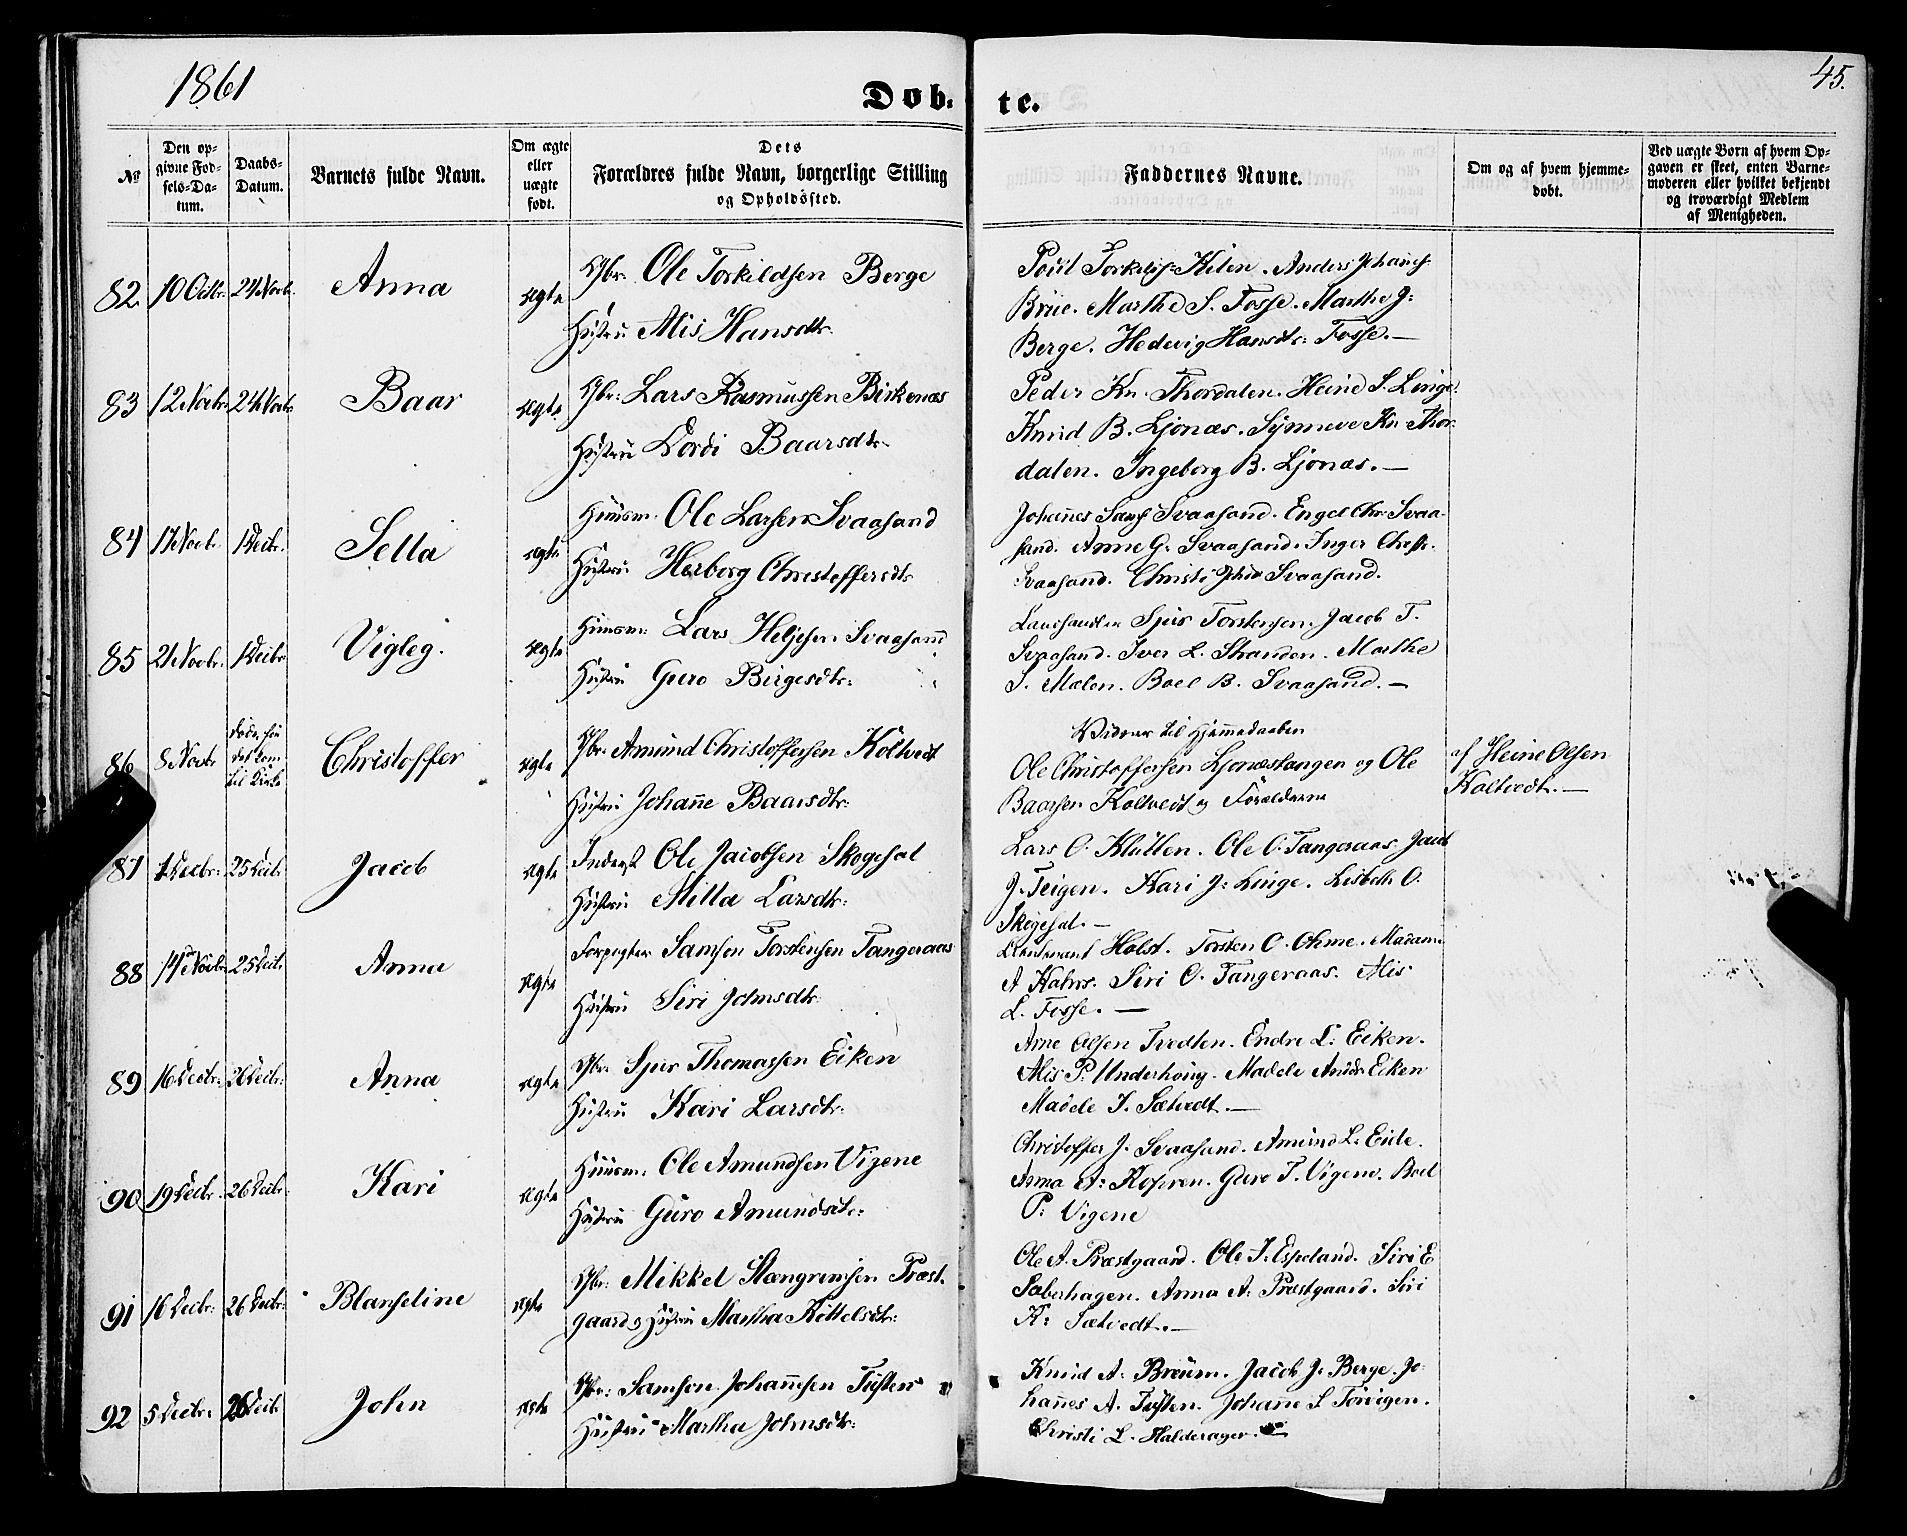 1861
45.
Døb- te.
No
Den op-
givne Fød-
sels-Da-
tum.
Daabs-
Datum.
Barnets fulde Navn.
Om ægte
eller
uægte
født.
Dets
Forældres fulde Navn, borgerlige Stilling
og Opholdssted.
Faddernes Navne.
Om og af hvem hjemme-
døbt.
Ved uægte Børn af hvem Op-
gaven er skeet, enten Barne-
moderen eller hvilket bekjendt
og troværdigt Medlem
af Menigheden.
82. 10 Octbr. 24 Novbr. Anna ægte
Gbr. Ole Torkildsen Berge
Hustru Alis Hansdtr.
Poul Torkelss. Kilen. Anders Johannes
Brue. Marthe S. Fosse. Marthe J:
Berge. Hedevig Hansdtr: Fosse.—
83 12 Novbr. 24 Novbr. Baar ægte
Gbr: Lars Rasmussen Birkenæs
Hustru Dordi Baarsdtr.
Peder Kn. Thordalen. Heine S. Linge.
Knud B. Ljonæs. Synneve Kn. Thor-
dalen. Ingeborg B. Ljonæs.—
84 17 Novbr. 1 Decbr. Sella ægte
Huusm. Ole Larsen Svaasand
Hustru Herborg Christoffersdtr
Johannes Svaasand. Engel Chr. Svaa-
sand. Anne G. Svaasand. Inger Chrstr.
Svaasand. Christi Svaasand.
85 21 Novbr. 1 Decbr Vigleg. ægte
Huusm: Lars Heljesen Svaasand
Hustru Guro Birgesdtr:
Landhandler Sjur Torstensen. Jacob T.
Svaasand. Iver L. Stranden. Marthe
S. Mælen. Boel B. Svaasand.—
86 8 Novbr døde før
det kom
til Kirke Christoffer ægte
Gbr: Amund Christoffersen Koltvedt
Hustru Johanne Baarsdtr:
Vidner til Hjemmedaaben
Ole Christoffersen Ljonæstangen og Ole
Baarsen Koltvedt og Forældrene
af Heine Olsen
Koltvedt.—
87 1 Decbr: 25 Decbr Jacob ægte
Inderst Ole Jacobsen Skogesal
Hustru Milla Larsdtr:
Lars O. Klütten. Ole O. Tangeraas. Jacob
J. Teigen. Kari J: Linge. Lisbeth O.
Skogesal.—
88 14 Novbr 25 Decbr Anna ægte
Forpagter Samson Torstensen Tangeraas
Hustru Siri Johnsdtr
Lieutenant Holst. Torsten O. Ohme. Madame
A Hahrs. Siri O. Tangeraas. Alis
L. Fosse.—
89. 16 Decbr: 26 Decbr: Anna ægte
Gbr. Sjur Thomassen Eiken
Hustru Kari Larsdtr:
Arne Olsen Tvedten. Endre L: Eiken.
Alis P. Underhoug. Madele Eiken
Madele I. Sætvedt.—
90. 19 Decbr. 26 Decbr: Kari ægte
Huusm: Ole Amundsen Vigene
Hustru Guro Amundsdtr:
Christoffer J. Svaasand. Amund L. Eide.
Anna A: Kosven. Guro T. Vigene. Boel
P: Vigene
91 16 Decbr: 26 Decbr: Blanseline ægte
Gbr: Mikkel Stangrimsen Præst-
gaard og Hustru Martha Kittelsdtr:
Ole A. Præstgaard. Ole I. Espeland. Siri E
Saberhagen. Anna A: Præstgaard. Siri
K: Sætvedt.—
92 5 Decbr: 26 Decbr John ægte
Gbr: Samson Johannesen Tusten
Hustru Martha Johnsdtr:
Knud A. Breum. Jacob J. Berge. Jo-
hannes A. Tusten. Johanne S Torvigen.
Christi L. Halderager.—